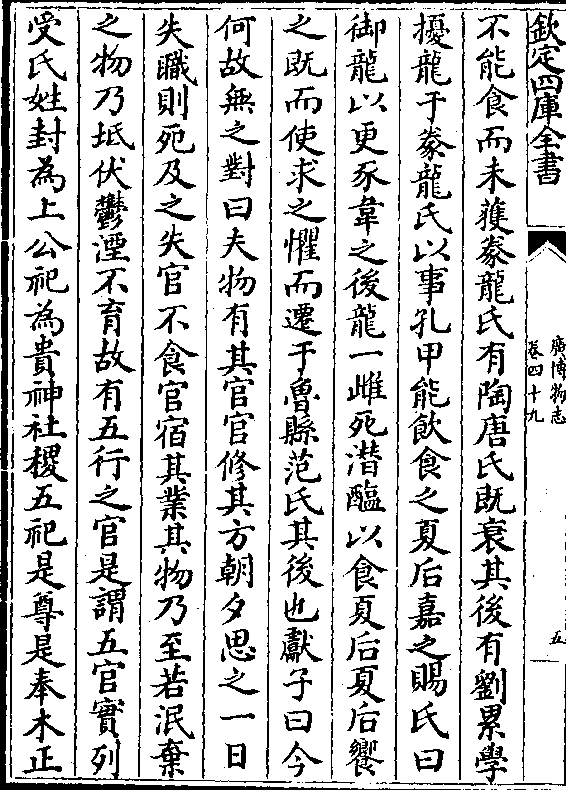 欽定四庫全書
廣博物志
卷四十九
五
不能食而未獲豢龍氏有陶唐氏既衰其後有劉累學
擾龍于豢龍氏以事孔甲能飲食之夏后嘉之賜氏曰
御龍以更豕韋之後龍一雌死潛醢以食夏后夏后饗
之既而使求之懼而遷于魯縣范氏其後也獻子曰今
何故無之對曰夫物有其官官修其方朝夕思之一日
失職則死及之失官不食官宿其業其物乃至若泯棄
之物乃坻伏鬱湮不育故有五行之官是謂五官實列
受氏姓封為上公祀為貴神社稷五祀是尊是奉木正